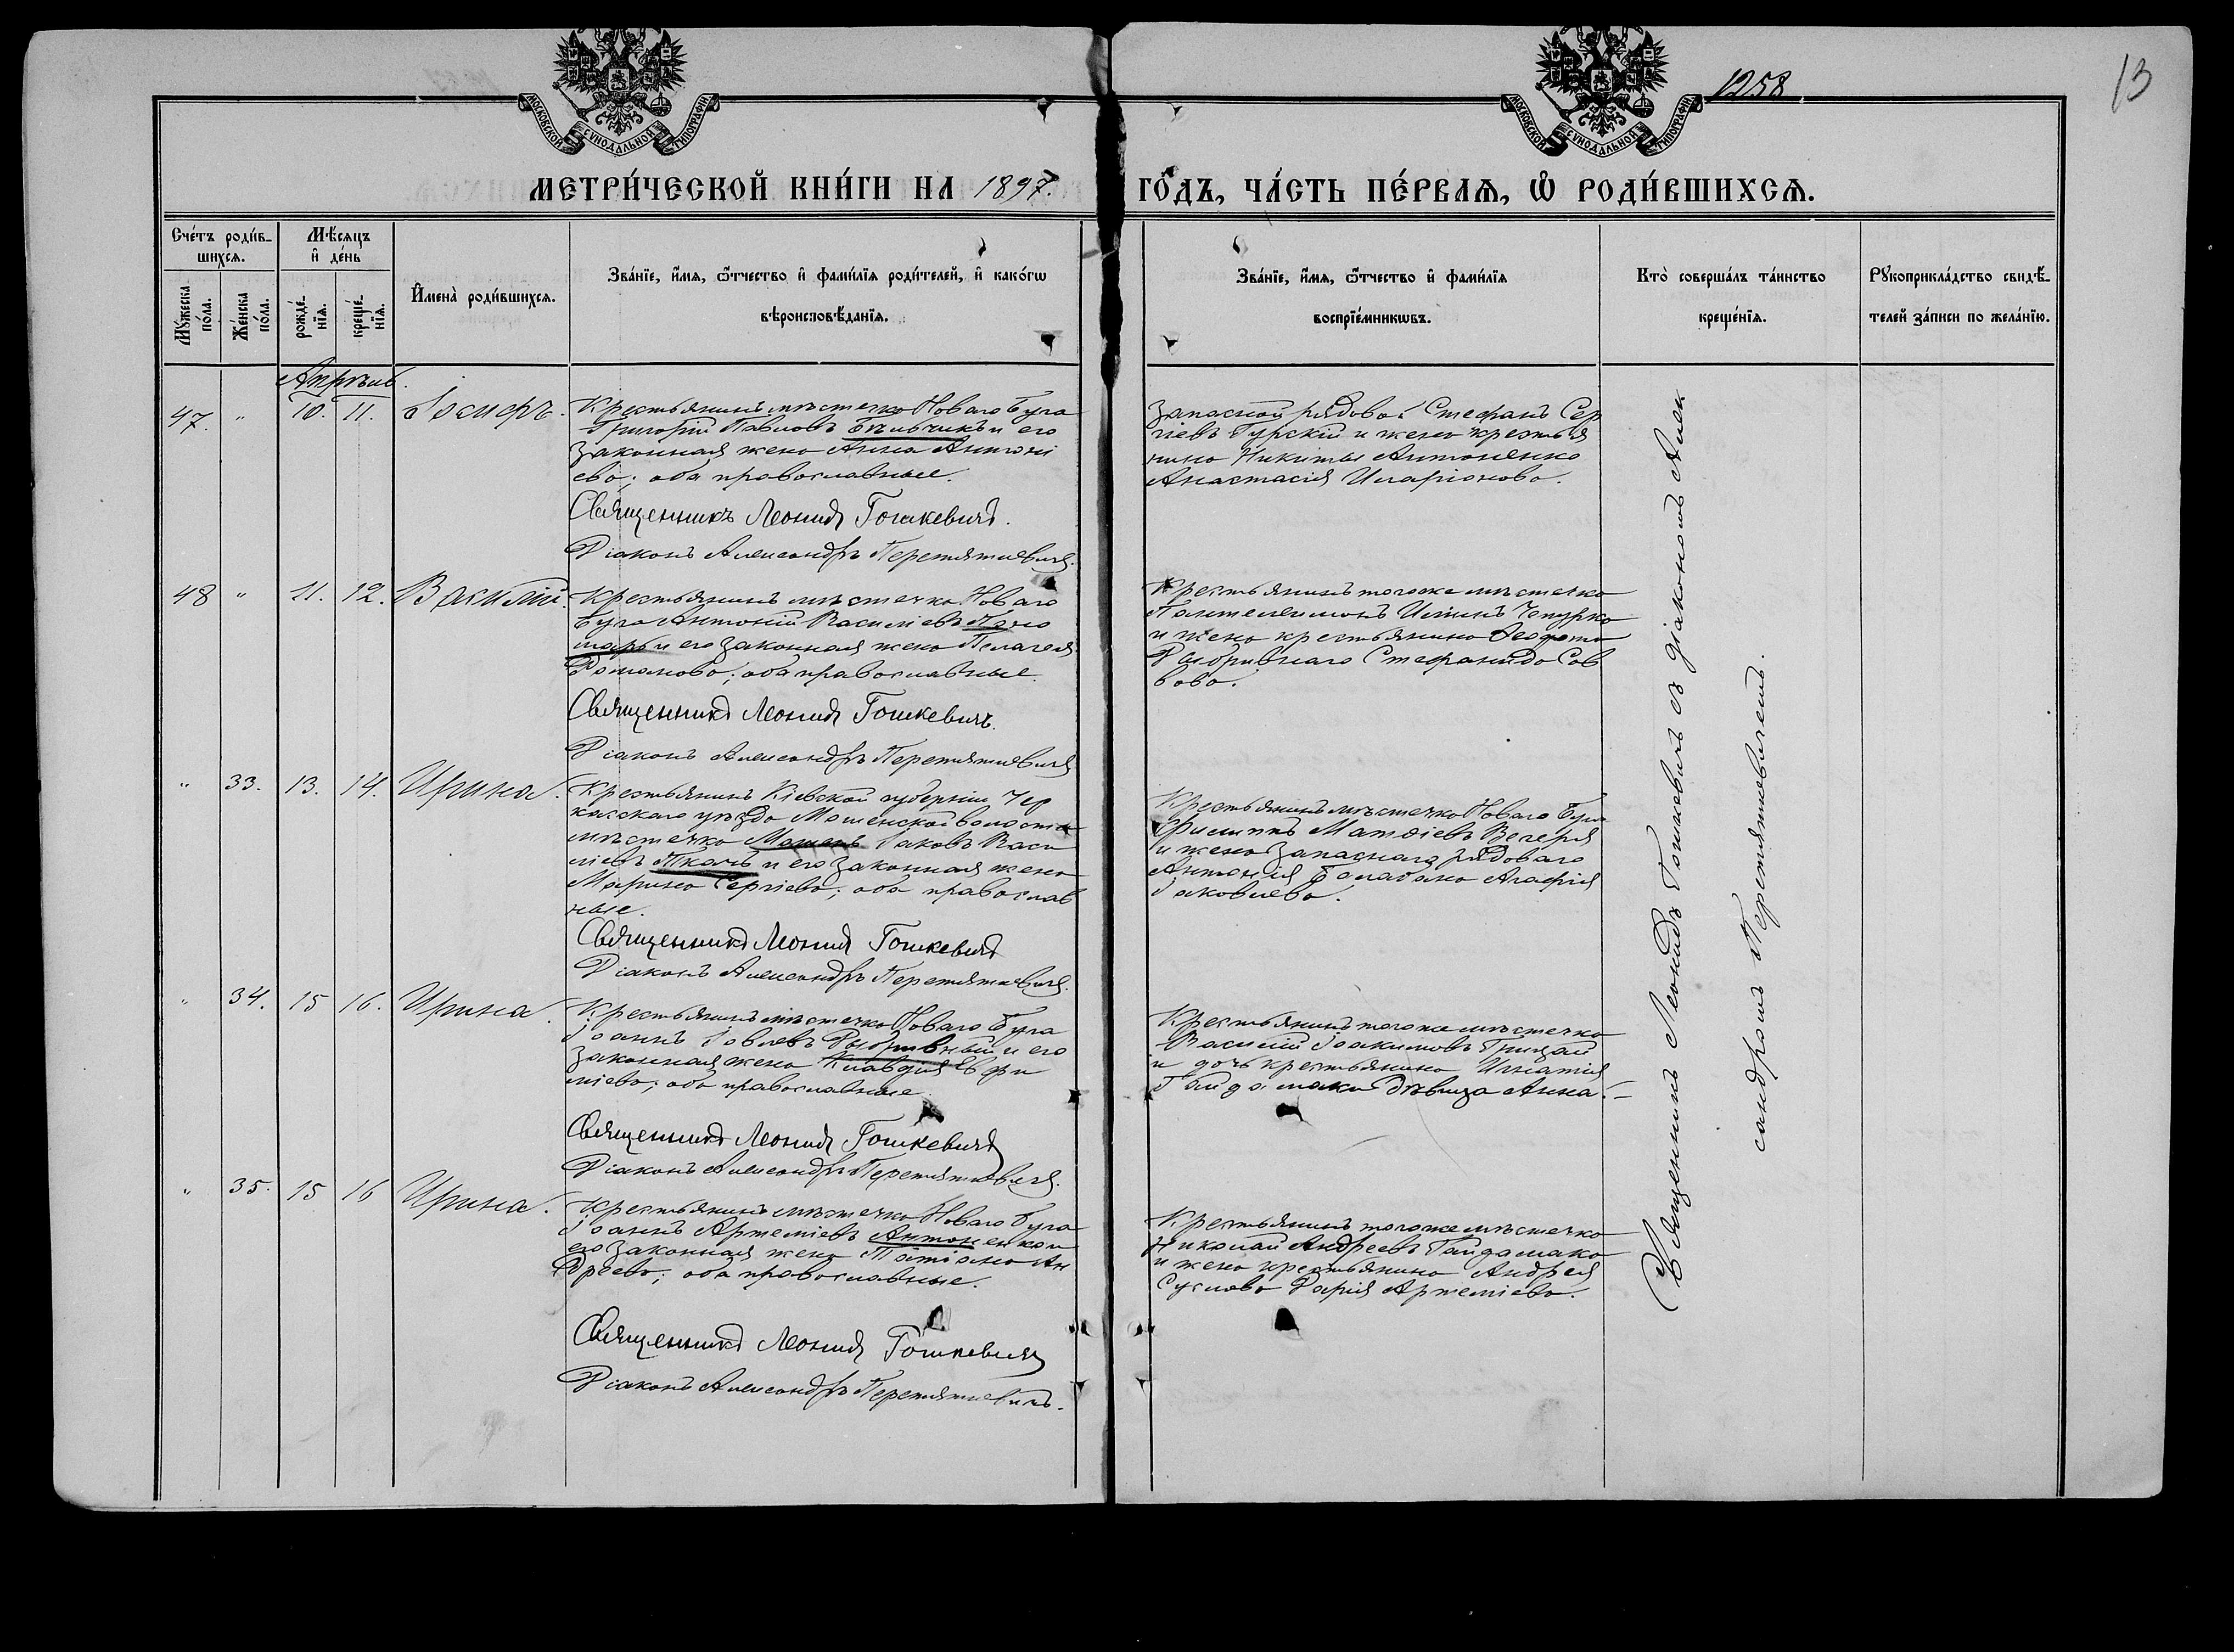 1258
13
МОСКОВСКОЙ СУНОДАЛЬНОЙ ТИПОГРАФІИ
МОСКОВСКОЙ СУНОДАЛЬНОЙ ТИПОГРАФІИ
МЕТРИ́ЧЕСКОЙ КНИ́ГИ НА 1897. ГО́ДЪ, ЧА́СТЬ ПЕ́РВАѦ, Ѽ РОДИ́ВШИХСѦ.
Сче́тъ роди́в-
шихсѧ.
Мѣ́сѧцъ
и҆ де́нь
Мꙋ́жеска
по́ла.
Же́нска
по́ла.
рожде́-
нїѧ.
креще́-
нїѧ.
И҆мена̀ роди́вшихсѧ.
Зва́нїе, и҆́мѧ, ѻ҆́тчество и҆ фами́лїѧ роди́телей, и҆ како́гѡ
вѣроисповѣ́данїѧ.
Зва́нїе, и҆́мѧ, ѻ҆́тчество и҆ фами́лїѧ
воспрїе́мникѡвъ.
Кто̀ соверша́лъ та́инство
креще́нїѧ.
Рꙋкоприкла́дство свидѣ́-
телей за́писи по жела́нїю.
Апрѣль.
47. " 10. 11. Іосифъ.
Крестьянинъ мѣстечка Новаго Буга
Григорій Павловъ Бѣльчикъ и его
законная жена Анна Антоні
ева; оба православные.
Священникъ Леонидъ Гошкевичъ.
Діаконъ Александръ Перетяткевичъ.
Запасной рядовой Стефанъ Сер
гіевъ Гурскій и жена крестья
нина Никиты Антоненко
Анастасія Иларіонова.
48 " 11. 12. Василій.
Крестьянинъ мѣстечка Новаго
Буга Антоній Василіевъ Поно
марь и его законная жена Пелагея
Романова; оба православные.
Священникъ Леонидъ Гошкевичъ.
Діаконъ Александръ Перетяткевичъ
Крестьянинъ того же мѣстечка
Пантелеимонъ Ильинъ Чепурко
и жена крестьянина Ѳеодота
Стефанида Сав
вова.
" 33. 13. 14. Ирина.
Крестьянинъ Кіевской губерніи Чер
касскаго уѣзда Мошенской волости
мѣстечка Мошенъ Іаковъ Васи
ліевъ Ткачъ и его законная жена
Марина Сергіева; оба православ
ные.
Священникъ Леонидъ Гошкевичъ
Діаконъ Александръ Перетяткевичъ.
Крестьянинъ мѣстечка Новаго Буга
Филиппъ Матѳіевъ Вечеря
и жена запаснаго рядоваго
Антонія Балабана Агафія
Іаковлева.
" 34. 15 16. Ирина.
Крестьянинъ мѣстечка Новаго Буга
Іоаннъ Іовлевъ и его
законная жена Клавдія Евфи
міева; оба православные.
Священникъ Леонидъ Гошкевичъ
Діаконъ Александръ Перетяткевичъ.
Крестьянинъ того же мѣстечка
Василій Іоакимовъ Грицай
и дочь крестьянина Игнатія
Гайдамаки дѣвица Анна.
" 35. 15 16 Ирина.
Крестьянинъ мѣстечка Новаго Буга
Іоаннъ Артеміевъ Антоненко и
его законная жена Татіана Ан
дреева; оба православные.
Священникъ Леонидъ Гошкевичъ
Діаконъ Александръ Перетяткевичъ.
Крестьянинъ того же мѣстечка
Николай Андреевъ Гайдамака
и жена крестьянина Андрея
Суслова Дарія Артеміева.
Священникъ Леонидъ Гошкевичъ съ діакономъ Алек
сандромъ Перетяткевичемъ.